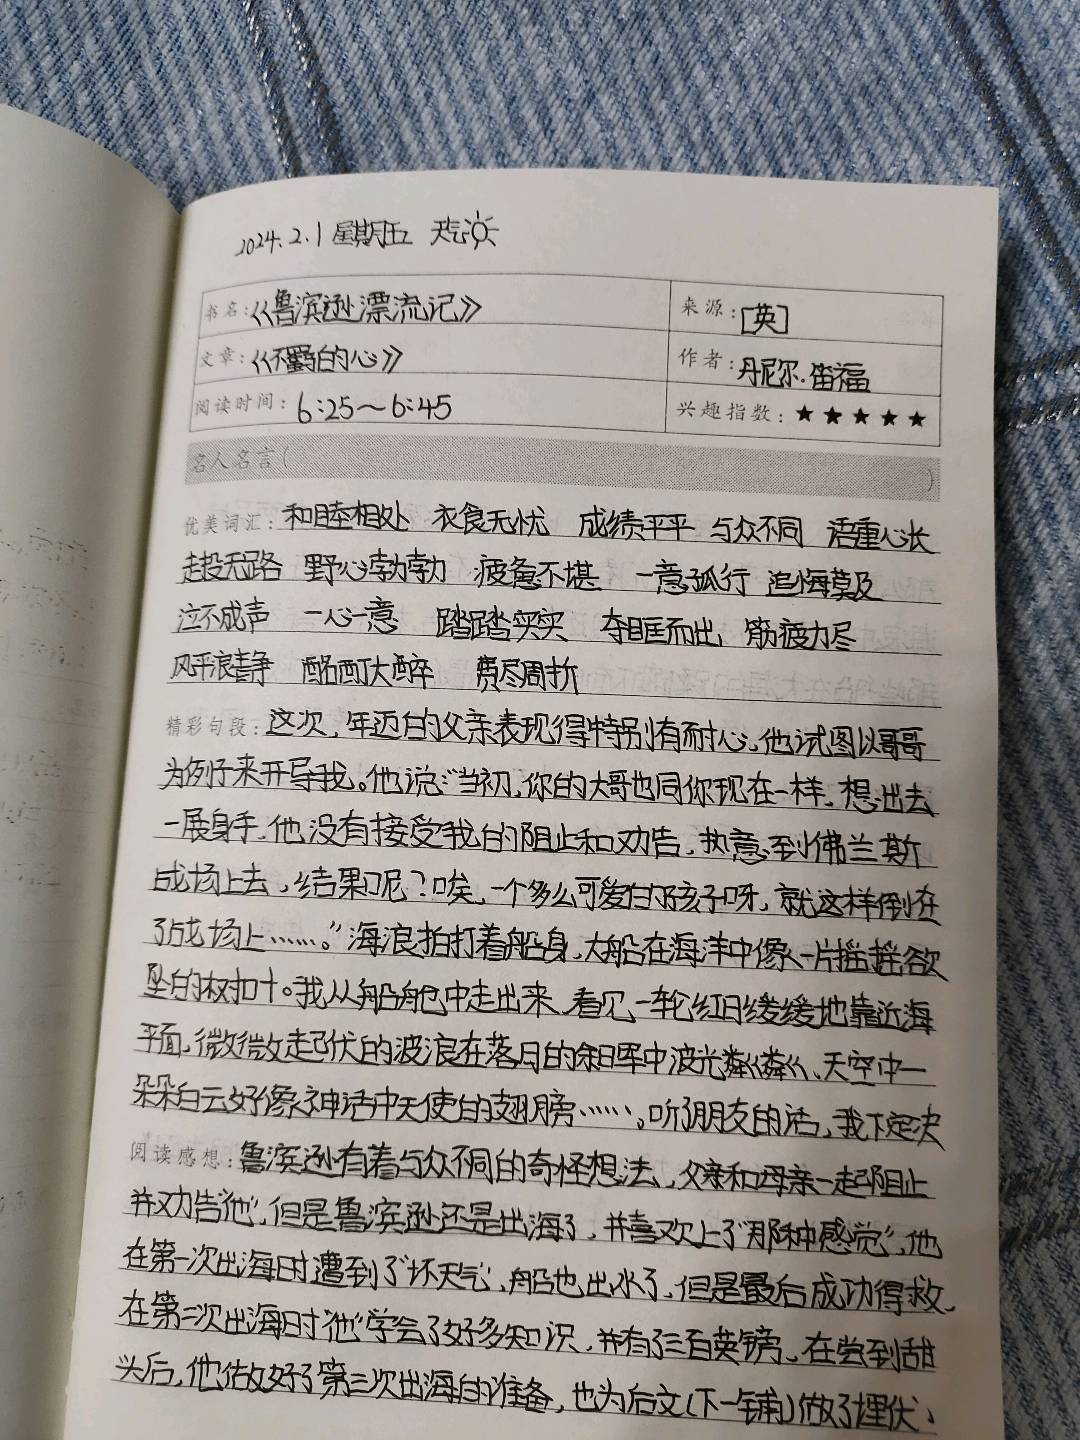 2024.2.1 星期五 天气
书名:《鲁滨逊漂流记》 来源:[英]
文章:《不羁的心》 作者:丹尼尔·笛福
阅读时间:6:25～6:45 兴趣指数:★★★★★
名人名言( )
优美词汇:和睦相处 衣食无忧 成绩平平 与众不同 语重心长
走投无路 野心勃勃 疲惫不堪 一意孤行 追悔莫及
泣不成声 一心一意 踏踏实实 夺眶而出 筋疲力尽
风平浪静 酩酊大醉 费尽周折
精彩句段:这次,年迈的父亲表现得特别有耐心,他试图以哥哥
为例子来开导我。他说:"当初,你的大哥也同你现在一样,想出去
一展身手,他没有接受我的阻止和劝告,执意到佛兰斯
战场上去,结果呢?唉,一个多么可爱的孩子呀,就这样倒在
了战场上……。"海浪拍打着船身,大船在海洋中像一片摇摇欲
坠的树叶。我从船舱中走出来,看见一轮红日缓缓地靠近海
平面,微微起伏的波浪在落日的余晖中波光粼粼,天空中一
朵朵白云好像神话中天使的翅膀……。听了朋友的话,我下定决
阅读感想:鲁滨逊有着与众不同的奇怪想法,父亲和母亲一起阻止
并劝告"他",但是鲁滨逊还是出海了,并喜欢上了"那种感觉",他
在第一次出海时遭到了"坏天气",船也出水了,但是最后成功得救,
在第二次出海时"他"学会了好多知识,并有了三百英镑,在尝到甜
头后,他做好了第三次出海的准备,也为后文(下一铺)做了埋伏,